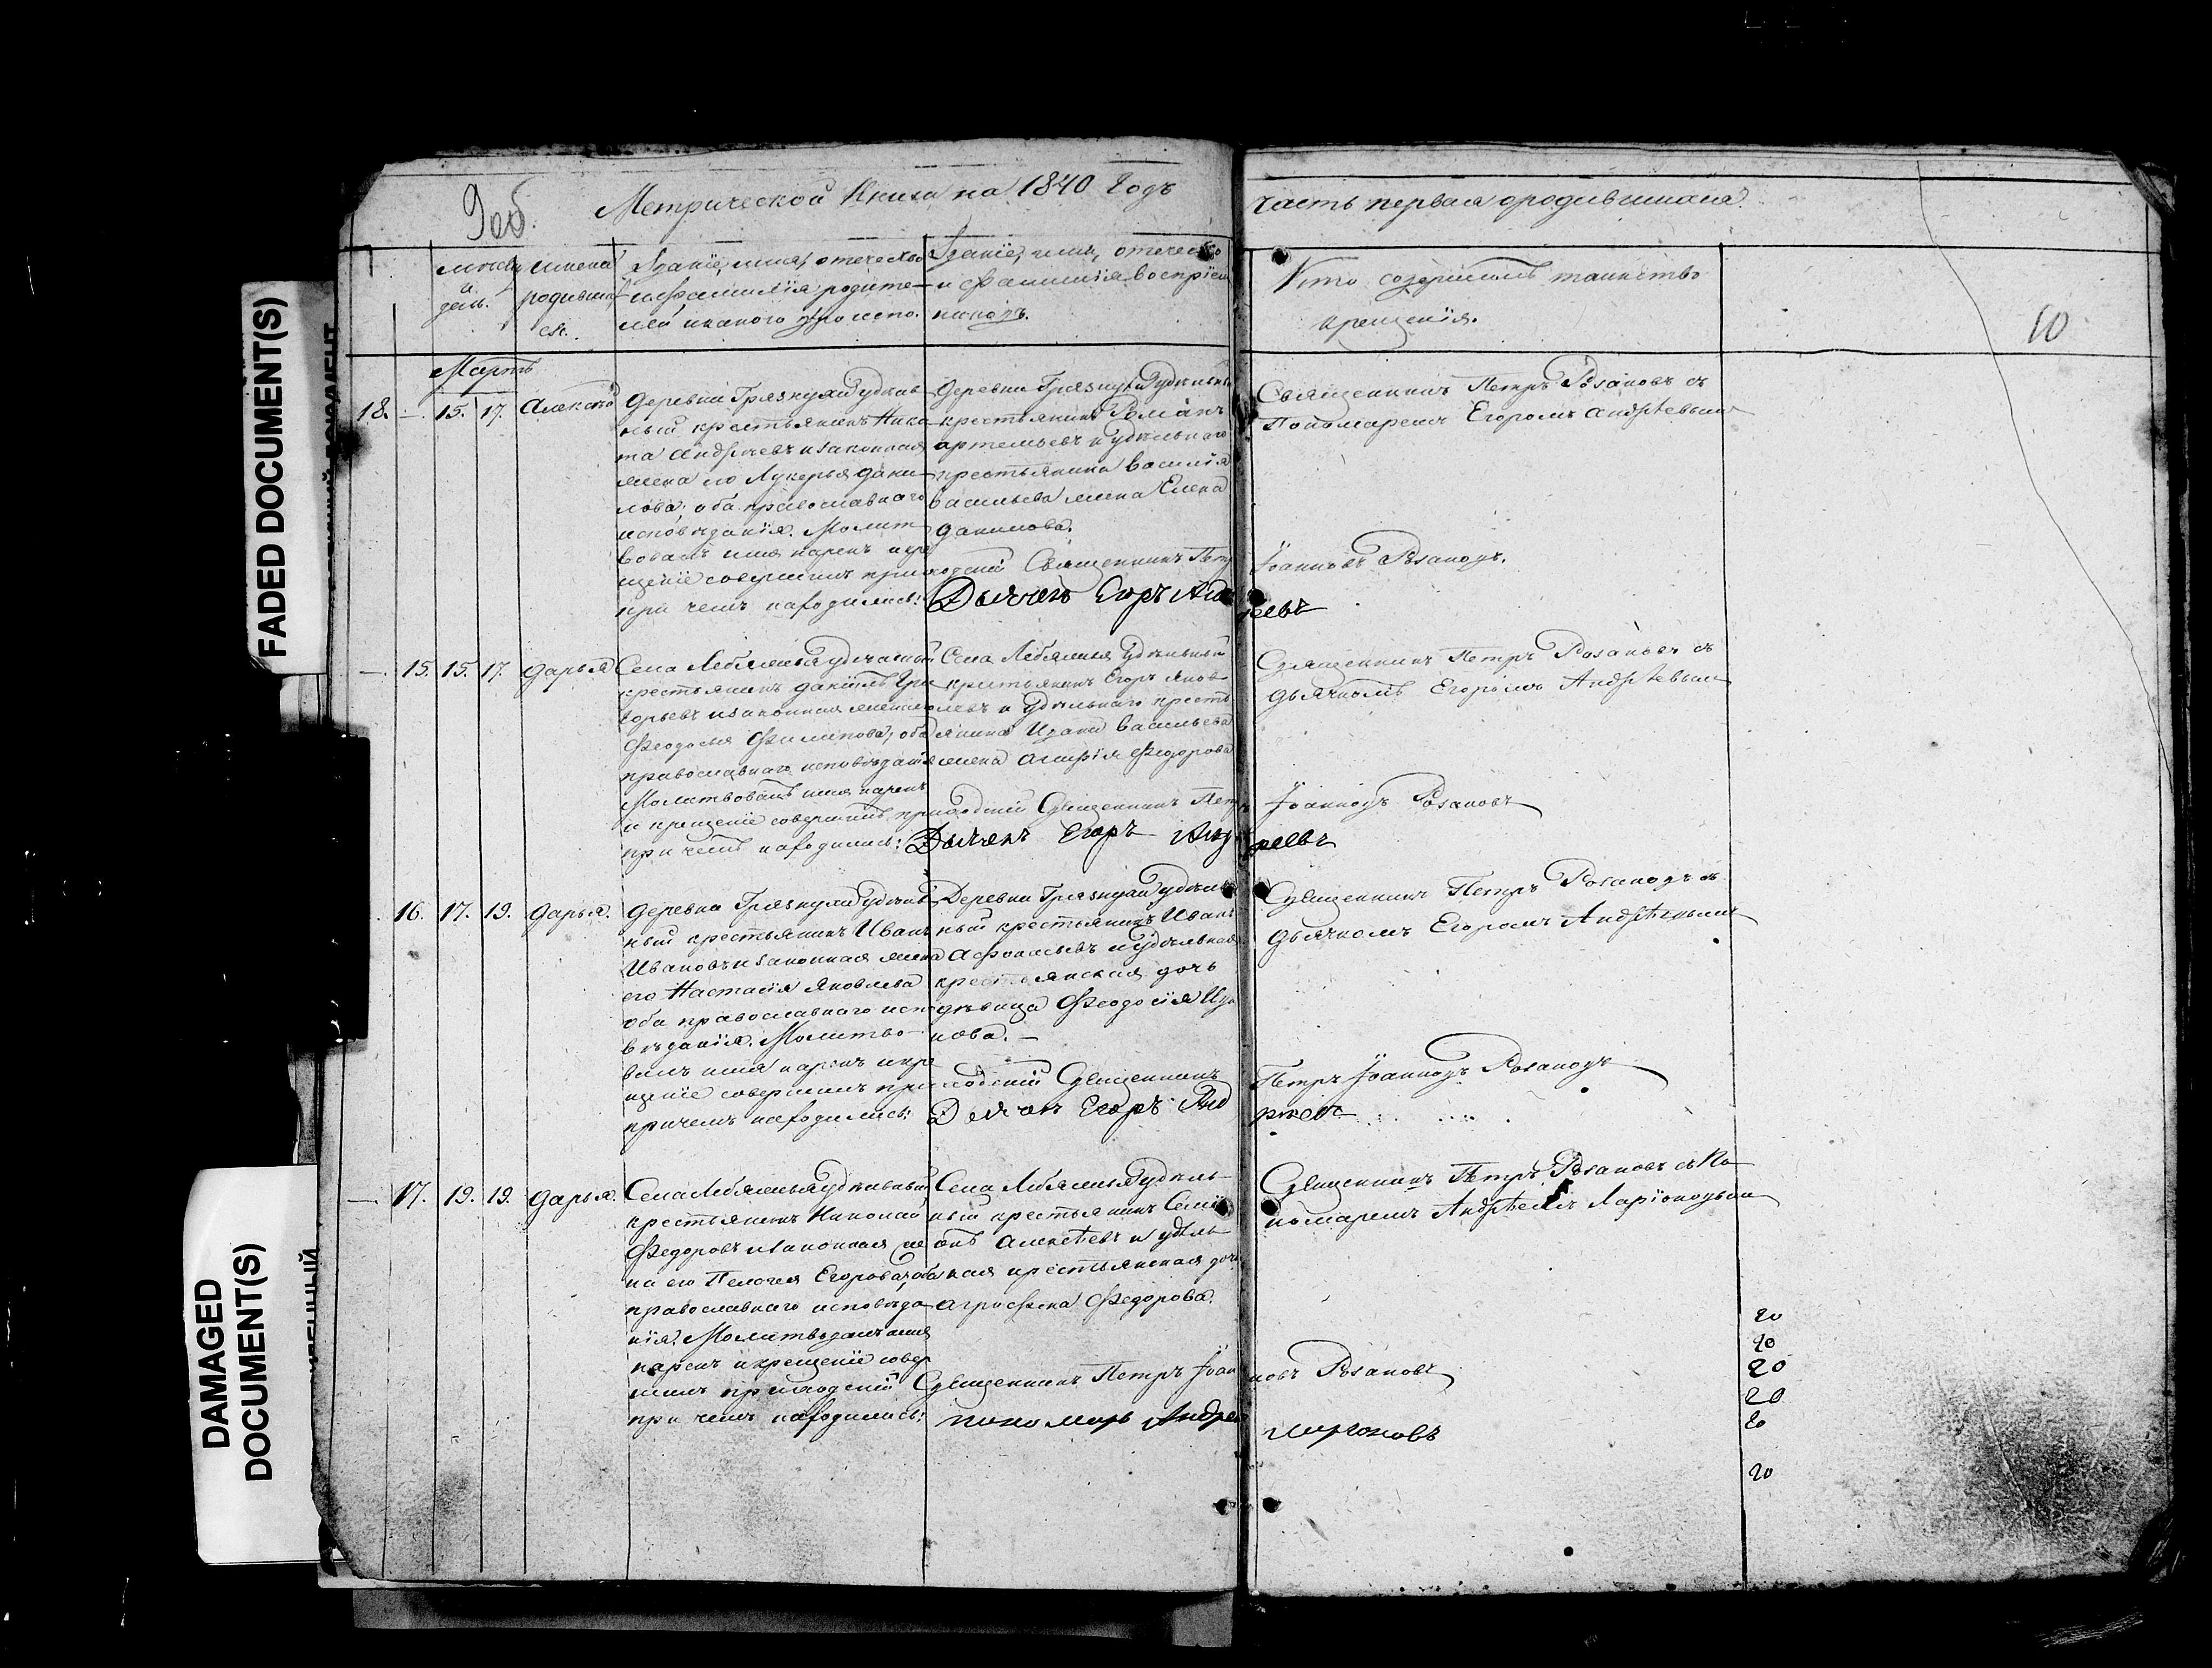 FADED DOCUMENT(S)
DAMAGED
DOCUMENT(S)
9об.
Метрической Книги на 1840 Годъ
часть первая о родившихся.
10
имена
родивших
ся.
Званіе, имя, отечество
и фамилія родите-
лей и какого
Званіе, имя, отечество
и фамилія воспріем
никовъ.
Кто совершалъ таинство
крещенія.
Мартъ
18. — 15. 17. Алексѣй
Деревни Грязнухи Удѣль
ный крестьянинъ Ники
та Андреевъ и законная
жена его Лукерья Дани
лова, оба православнаго
исповѣданія. Молит
вовалъ имя нарекъ и кре
щеніе совершилъ приходскій Священникъ Петръ Іоанновъ Розановъ.
при чемъ находились: Дьячекъ Егоръ Андреевъ
Деревни Грязнухи Удѣльный
крестьянинъ Романъ
Артемьевъ и удѣльнаго
крестьянина Василія
Васильева жена Елена
Данилова.
Священникъ Петръ Розановъ съ
Пономаремъ Егоромъ Андрѣевымъ
— 15. 15. 17. Дарья
Села Лебяжья Удѣльный
крестьянинъ Даніилъ Гри
горьевъ и законная жена его
Феодосья Филипова, оба
православнаго исповѣданія
Молитвовалъ имя нарекъ
и крещеніе совершилъ приходскій Священникъ Петръ Іоанновъ Розановъ
при чемъ находились: Дьячекъ Егоръ Андреевъ
Села Лебяжья Удѣльный
крестьянинъ Егоръ Яков
левъ и Удѣльнаго кресть
янина Ивана Васильева
жена Агафія Федорова
Священникъ Петръ Розановъ съ
дьячкомъ Егоромъ Андрѣевымъ
16. 17. 19. Дарья.
Деревни Грязнухи Удѣль
ный крестьянинъ Иванъ
Ивановъ и законная жена
его Настасія Яковлева
оба православнаго испо
вѣданія. Молитво
валъ имя нарекъ и кре
щеніе совершилъ приходскій Священникъ Петръ Іоанновъ Розановъ
при чемъ находились: Дьячекъ Егоръ Андреевъ
Деревни Грязнухи Удѣль
ный крестьянинъ Иванъ
Афонасьевъ и Удѣльная
крестьянская дочь
дѣвица Феодосія Ива
нова. —
Священникъ Петръ Розановъ съ
дьячкомъ Егоромъ Андрѣевымъ
— 17. 19. 19. Дарья.
Села Лебяжья Удѣльный
крестьянинъ Николай
Федоровъ и законная же
на его Пелагея Егорова, оба
православнаго исповѣда
нія. Молитвовалъ имя
нарекъ и крещеніе совер
шилъ приходскій Священникъ Петръ Іоанновъ Розановъ
при чемъ находились: пономарь Андрей
Села Лебяжья Удѣль-
ный крестьянинъ Семі
онъ Алексѣевъ и удѣль
ная крестьянская дочь
Агрофена Федорова.
Священникъ Петръ Розановъ съ По
номаремъ Андрѣемъ Ларіоновымъ
20
20
20
20
20
20